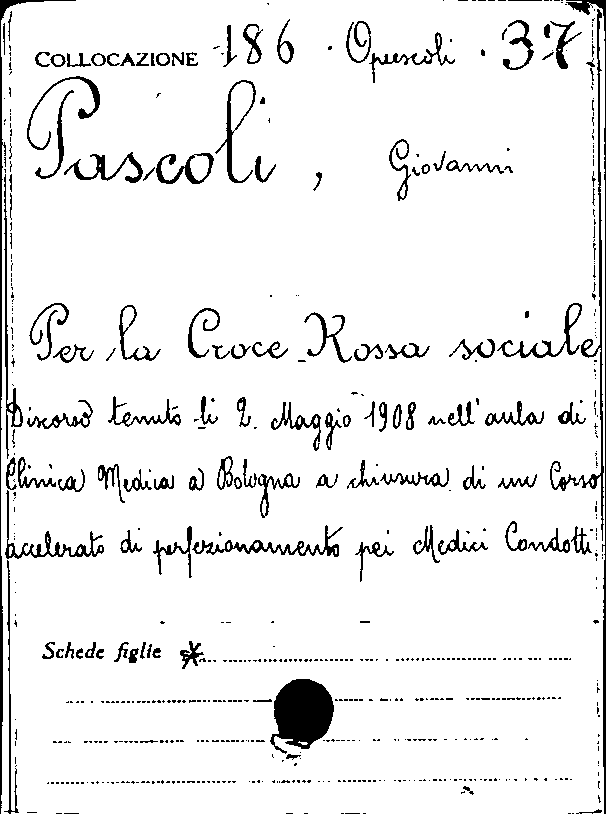 COLLOCAZIONE 186 · Opuscoli · 37.
Pascoli, Giovanni
Per la Croce Rossa sociale
Discorso tenuto li 2. Maggio 1908 nell'aula di
Clinica Medica a Bologna a chiusura di un Corso
accelerato di perfezionamento pei Medici Condotti.
Schede figlie *